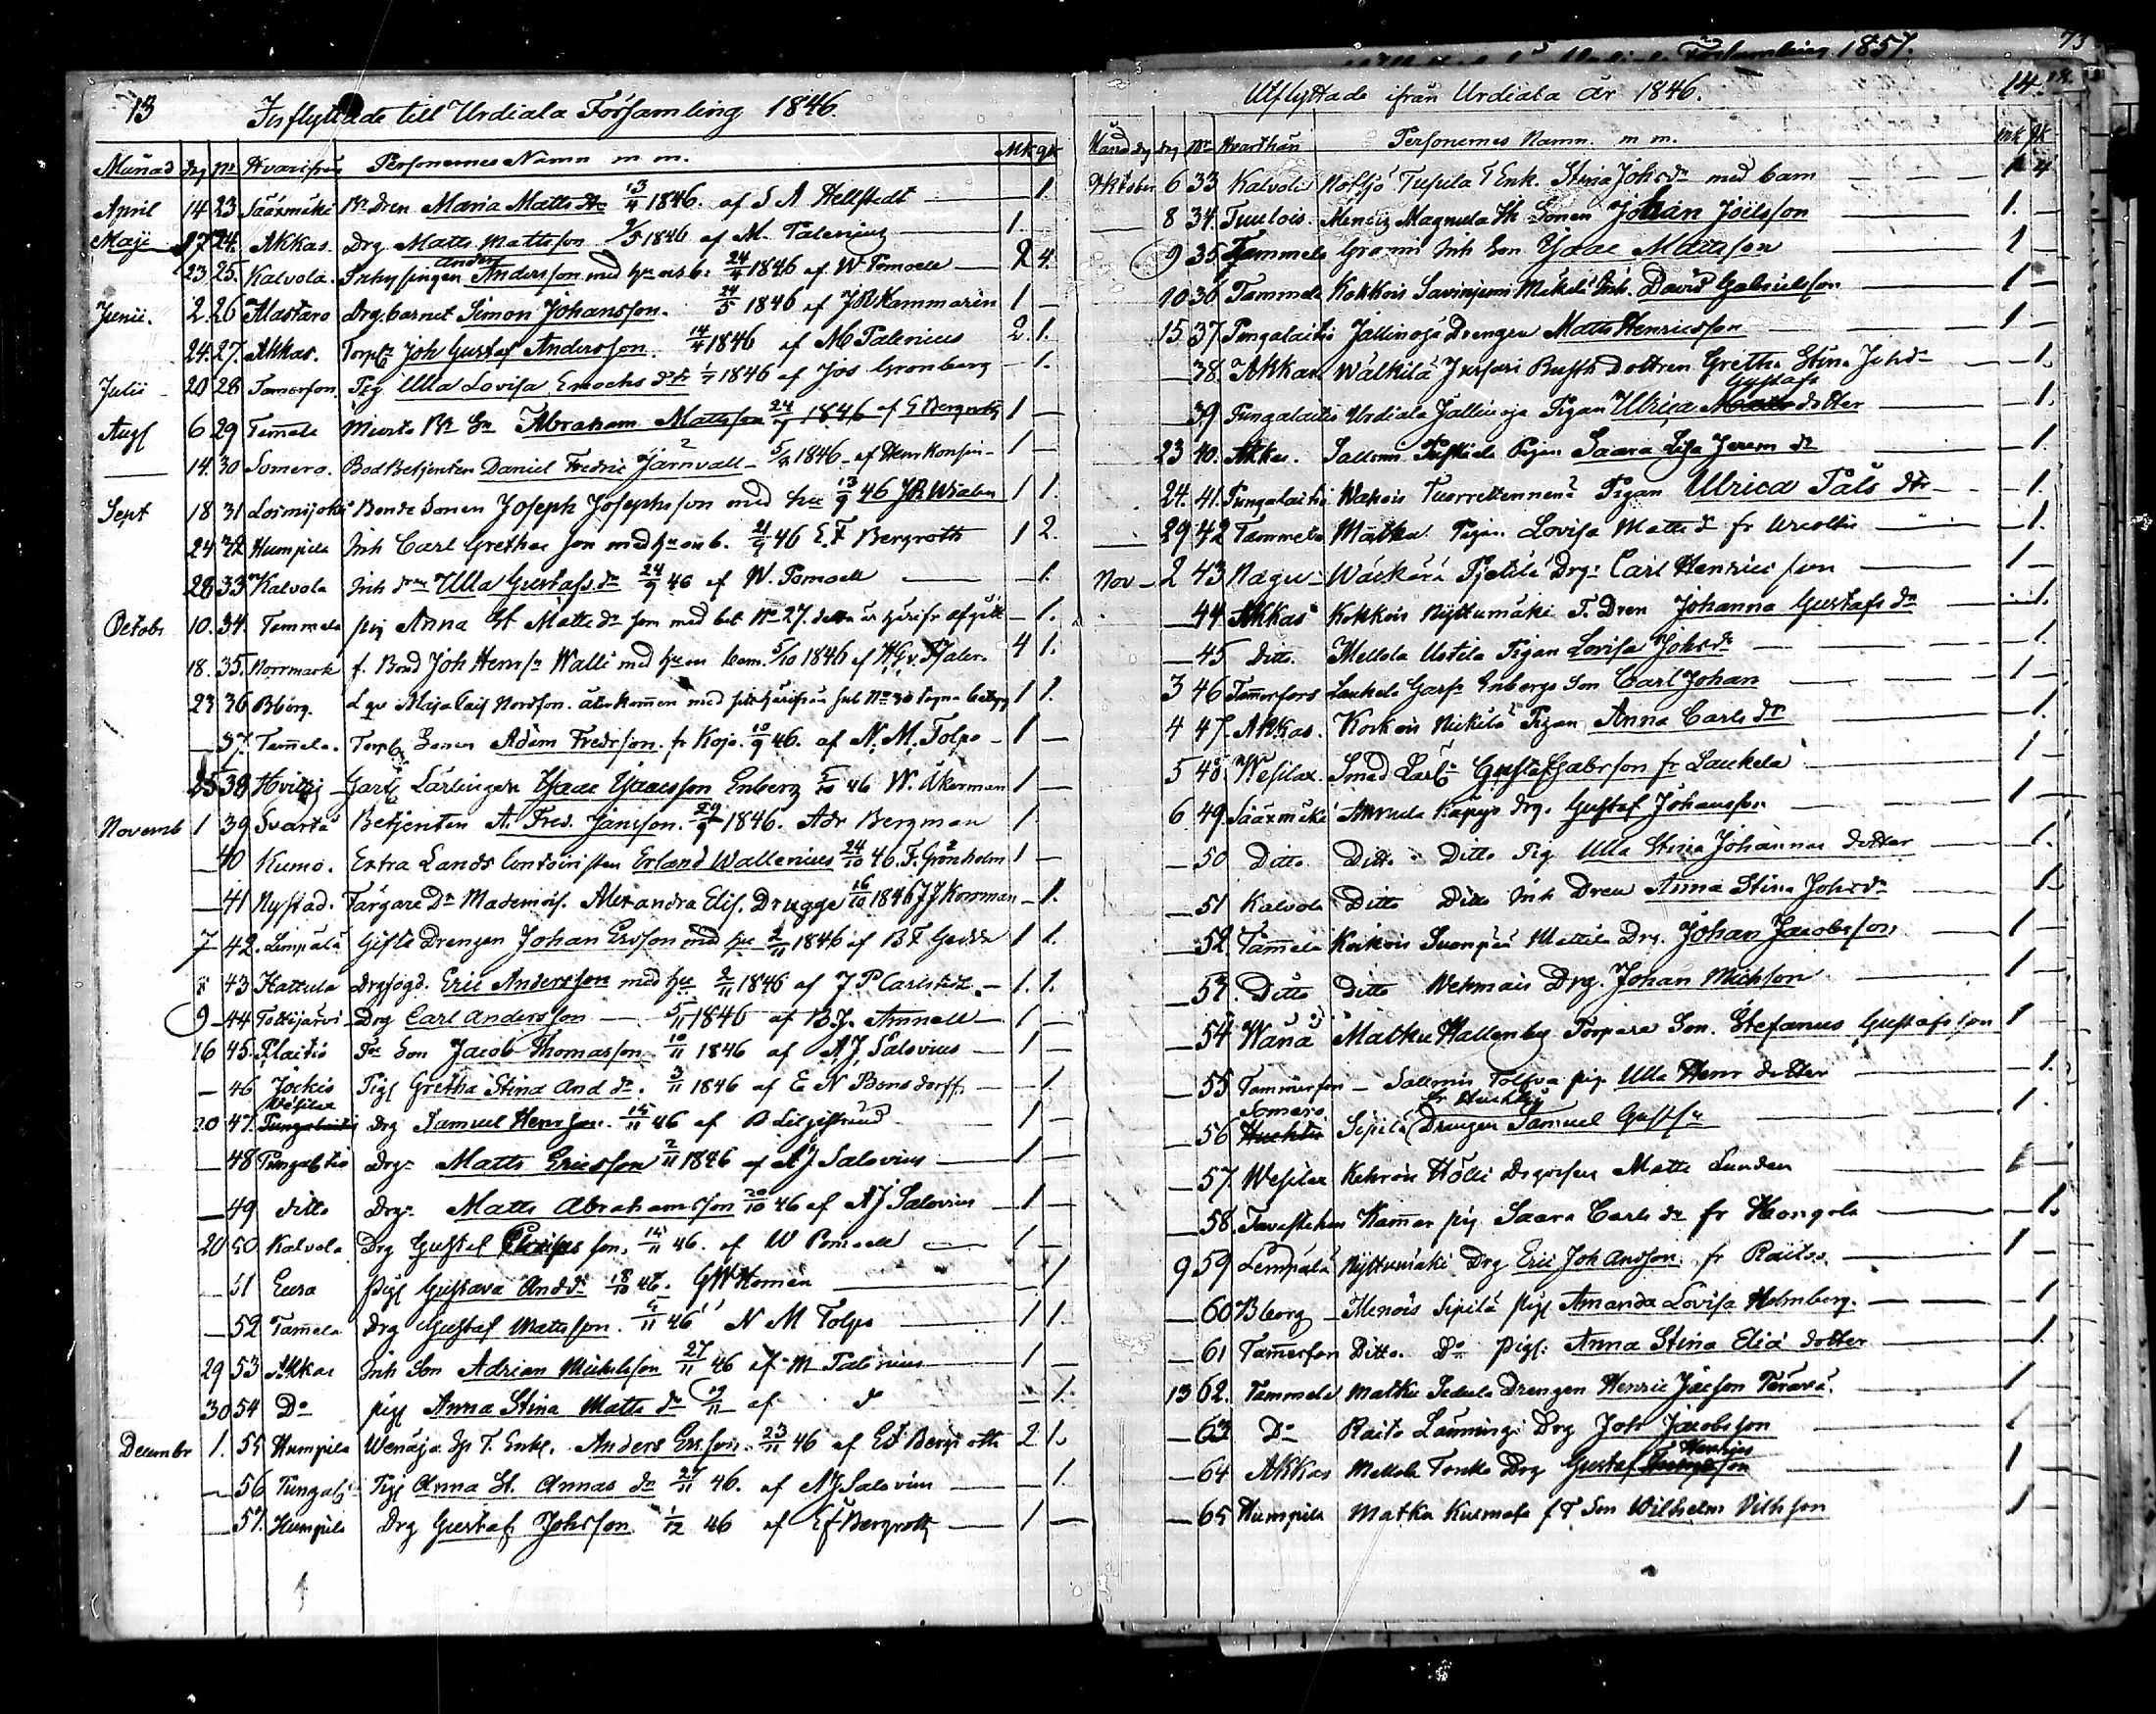 13 Inflyttade till Urdiala Församling 1846.
Månad dag No Hvarifrån Personernes Namn m m. Mk qk
April 14 23 Sääxmäki Maria Matts dr 13/4 1846. af S A Hellstedt — 1.
Maji 17 24. Akkas. Drg Matts Mattsson 1846 af M. Talenius 1.
Anders
23 25. Kalvola. Inhysingen Andersson med hu o 6. 24/4 1846 af W Pomoell — 2 4.
Junii. 2. 26 Alastaro Drg. barnet Simon Johansson. 24/5 1846 af J R Kammarin 1 —
24. 27. Akkas. Torp Joh Gustaf Andersson 14/4 1846 af M Talenius 2. 1.
Julii 20 28 Tamerfors. Pig Ulla Lovisa Enochs dr 1/7 1846 af Jos Gronberg — 1.
Aug 6 29 Tamela Abraham Mattsson 24/7 1846 af E Bergroth 1 —
14. 30 Somero. Bod Betjenten Daniel Fredric Järnvall 1846 af Henr 1 —
Sept 18 31 Loimijoki Bonde Sonen Joseph Josephsson med hu 13/9 46 1 1.
24 32 Humpila Inh Carl Grethas son med hu o 6. 21/9 46 E. F Bergroth 1 2.
28 33 Kalvola Inh dren Ulla Gustafs dr 24/9 46 af W. Pomoell — 1.
Octobr 10. 34. Tammela pig Anna St Matts dr som med bet No 27. härifr afgått — 1.
18. 35. Norrmark f. Bond Joh Henrs Walli med hu o barn. 5/10 1846 af 4 1.
23 36 Bborg. Maja Caisa Nordson. återkommen med härifrån sub No 30 1 1.
— 37. Tamela. Torp Sonen Adam Fredrson. fr Kojo. 10/9 46. af N. M. Tolpo — 1 —
25 38 Hvittis Garf Lärlingen Isaac Isaacsson Enberg 5/10 46 W. Åkerman 1 —
Novemb 1 39 Svartå Betjenten A. Fred. Jansson. 29/9 1846. Adr Bergman 1
— 40 Kumo. Extra Lands Contoiristen Erland Wallenius 24/10 46. F. Grönholm 1 —
— 41 Nystad. Färgare Dr Mademois. Alexandra Elis. Drugge 16/10 1846 J J — 1.
7 42. Lempälä Gifte Drengen Johan Ersson med hu 2/11 1846 af B F Gadda 1 1.
8 43 Hattula Drgfogd. Eric Andersson med hu 2/11 1846 af J P Carlstedt — 1. 1.
9 44 Tottijärvi Drg Carl Andersson 5/11 1846 af B J. Amnell — 1 —
16 45. Plaitis Tor Son Jacob Thomasson 10/11 1846 af A J Salovius — 1 —
— 46 Jockis Pig Gretha Stina And dr. 3/11 1846 af E N Bonsdorff. — 1.
Wesilax
20 47. Pungalaitis Drg Samuel Henrsson. 15/11 46 af B Liljestrand 1 —
— 48 Pungaltio Drg Matts Ericsson 2/11 1846 af A J Salovius 1 —
— 49 ditto Drg. Matts Abrahamsson 20/10 46 af A J Salovius 1 —
20 50 Kalvola Drg Gustaf son, 14/11 46. af W Pomoell — 1 —
51 Eura Pig Gustava And dr 18/10 46. G W Homén — 1
— 52 Tamela Drg Gustaf Mattsson. 4/11 46 N M Tolpo 1 1.
29 53 Akkas Inh Son Adrian Michelsson 27/11 46 af M Talenius 1 —
30 54 Do pig Anna Stina Matts dr 19/11 af d — 1.
Decembr 1. 55 Humpila T. Enkl. Anders Ersson. 23/11 46 af E F Bergroth 2 1.
— 56 Pungal Pig Anna St. Annas dr 27/11 46. af A J Salovius — 1.
— 57. Humpila Drg Gustaf Johsson 1/12 46 af E F Bergroth — 1 —
Församling 1857. 73
Utflyttade ifrån Urdiala år 1846. 14.
Månad dag No Hvarthän Personernes Namn. m m. mk qk
Oktober 6 33 Kalvola Nutajo T Enk. Stina Johsdr med barn 1 4
8 34. Tuulois. Menois Magnula Sonen Johan Joelsson 1. —
9 35 Tammela Inh Son Isaac Mattsson 1 —
10 36 Tammela Kokkois Savinjemi Inh. David Gabrielsson 1 —
15 37. Pungalaitis Jallinoja Drengen Matts Henricsson 1 —
— 38. Akkas Wälkilä Dottren Gretha Stina Johsdr — 1.
Gustafs
39 Pungalaitis Urdiala Jallinoja Pigan Ulrica dotter — 1.
23 40. Akkas. Sallonis Pigan Saara Lisa Jerem dr — 1.
24. 41. Pungalaitis Wahois Pigan Ulrica Påls dr — 1.
29 42 Tammela Matku. Pigan Lovisa Matts dr fr — 1.
Nov — 2 43 Nagu — Drg: Carl Henrics son 1 —
44 Akkas Kokkois Nyttumäki T. Dren Johanna Gustafs dr — 1.
— 45 Ditto. Mellola Uotila Pigan Lovisa Johsdr — 1.
3 46 Tamerfors Laukela Garf. Enbergs Son Carl Johan 1 —
4 47. Akkas. Kokkois Nickilä Pigan Anna Carls dr — 1.
5 48 Wesilax. Smed Gustaf Gabrsson fr Laukela 1 —
6 49. Sääxmäki Annula Kapys Drg. Gustaf Johansson 1 —
— 50 Ditto Ditto Ditto Pig Ulla Stina Johannes dotter — 1.
— 51 Kalvola Ditto Ditto Inh Dren Anna Stina Johsdr — 1.
— 52 Tamela Koikois Suonpää Mattila Drg. Johan Jacobsson 1 —
— 53. Ditto ditto Wekmais Drg. Johan Michson 1 —
— 54 Wånå Matku Hallenberg Torpare Son. Stefanus Gustafsson 1 —
— 55 Tammerfors — Sallonis Tolfva pig. Ulla Henr dotter — 1.
Somero fr Huchtis
— 56 Huchtis Sipilä Drengen Samuel Gustsn 1.
— 57. Wesilax Kehrois Hölli Matts Lunden 1 —
— 58. Tavastehus Kamar pig Saara Carls dr fr Hongola — 1.
9 59 Lempälä Nyttumäki Drg Eric Joh Andsson. fr Raitoo. 1 —
— 60 Bborg Menois Sipilä pig Amanda Lovisa Holmberg. — 1
— 61 Tamerfors Ditto. Do pig: Anna Stina Elia dotter — 1.
13 62. Tammela Matku Sedula Drengen Henric Jacson Terävä. 1
— 63 Do Raito Länmingi Drg Joh Jacobsson 1
Henrics
— 64 Akkas Mellola Torkko Drg Gustaf son 1
— 65 Humpila Matku Kulmala f T Son Wilhelm Vilhsson 1 —